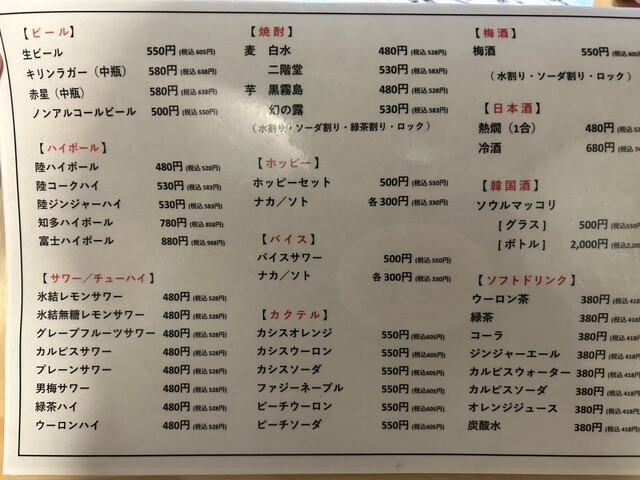 【ビール】
生ビール 550円 (税込 605円)
キリンラガー（中瓶） 580円 (税込 638円)
赤星（中瓶） 580円 (税込 638円)
ノンアルコールビール 500円 (税込 550円)
【ハイボール】
陸ハイボール 480円 (税込 528円)
陸コークハイ 530円 (税込 583円)
陸ジンジャーハイ 530円 (税込 583円)
知多ハイボール 780円 (税込 858円)
富士ハイボール 880円 (税込 968円)
【サワー／チューハイ】
氷結レモンサワー 480円 (税込 528円)
氷結無糖レモンサワー 480円 (税込 528円)
グレープフルーツサワー 480円 (税込 528円)
カルピスサワー 480円 (税込 528円)
プレーンサワー 480円 (税込 528円)
男梅サワー 480円 (税込 528円)
緑茶ハイ 480円 (税込 528円)
ウーロンハイ 480円 (税込 528円)
【焼酎】
麦 白水 480円 (税込 528円)
二階堂 530円 (税込 583円)
芋 黒霧島 480円 (税込 528円)
幻の露 530円 (税込 583円)
（水割り・ソーダ割り・緑茶割り・ロック）
【ホッピー】
ホッピーセット 500円 (税込 550円)
ナカ／ソト 各300円 (税込 330円)
【バイス】
バイスサワー 500円 (税込 550円)
ナカ／ソト 各300円 (税込 330円)
【カクテル】
カシスオレンジ 550円 (税込605円)
カシスウーロン 550円 (税込605円)
カシスソーダ 550円 (税込605円)
ファジーネーブル 550円 (税込605円)
ピーチウーロン 550円 (税込605円)
ピーチソーダ 550円 (税込605円)
【梅酒】
梅酒 550円 (税込 605
（水割り・ソーダ割り・ロック）
【日本酒】
熱燗（1合） 480円 (税込
冷酒 680円 (税込
【韓国酒】
ソウルマッコリ
[グラス] 500円 (税込550
[ボトル] 2,000円 (税込2,200
【ソフトドリンク】
ウーロン茶 380円 (税込 418
緑茶 380円 (税込 418円
コーラ 380円 (税込 418円
ジンジャーエール 380円 (税込 418円
カルピスウォーター 380円 (税込 418円
カルピスソーダ 380円 (税込 418円
オレンジジュース 380円 (税込 418円
炭酸水 380円 (税込 418円